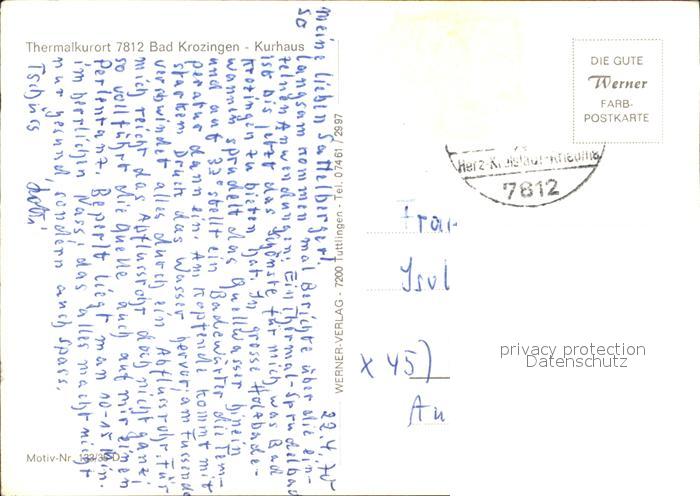 Thermalkurort 7812 Bad Krozingen - Kurhaus
22.4.70
Meine lieben Sattelberger!
So langsam kommen mal Berichte über die ein-
zelnen Anwendungen. Ein Thermal-Sprudelbad
ist bis jetzt das Schönste für mich was Bad
Krozingen zu bieten hat. In grosse Holzbade-
wannen sprudelt das Quellwasser hinein
und auf 33° stellt ein Badewärter die Tem-
peratur dann ein. Am Kopfende kommt mit
starkem Druck das Wasser hervor, am Fussende
verschwindet alles durch ein Abflussrohr. Für
mich reicht das Abflussrohr doch nicht ganz,
so vollführt die Quelle auch auf mir einen
Perlentanz. Beperlt liegt man 10-15 Min.
im herrlichen Nass; das alles macht nicht
nur gesund, sondern auch Spass.
Tschüss
WERNER-VERLAG - 7200 Tuttlingen - Tel. 07461 / 2997
Motiv-Nr.
DIE GUTE
Werner
FARB-
POSTKARTE
7812
Frau
Isol
x 45)
Au
privacy protection
Datenschutz